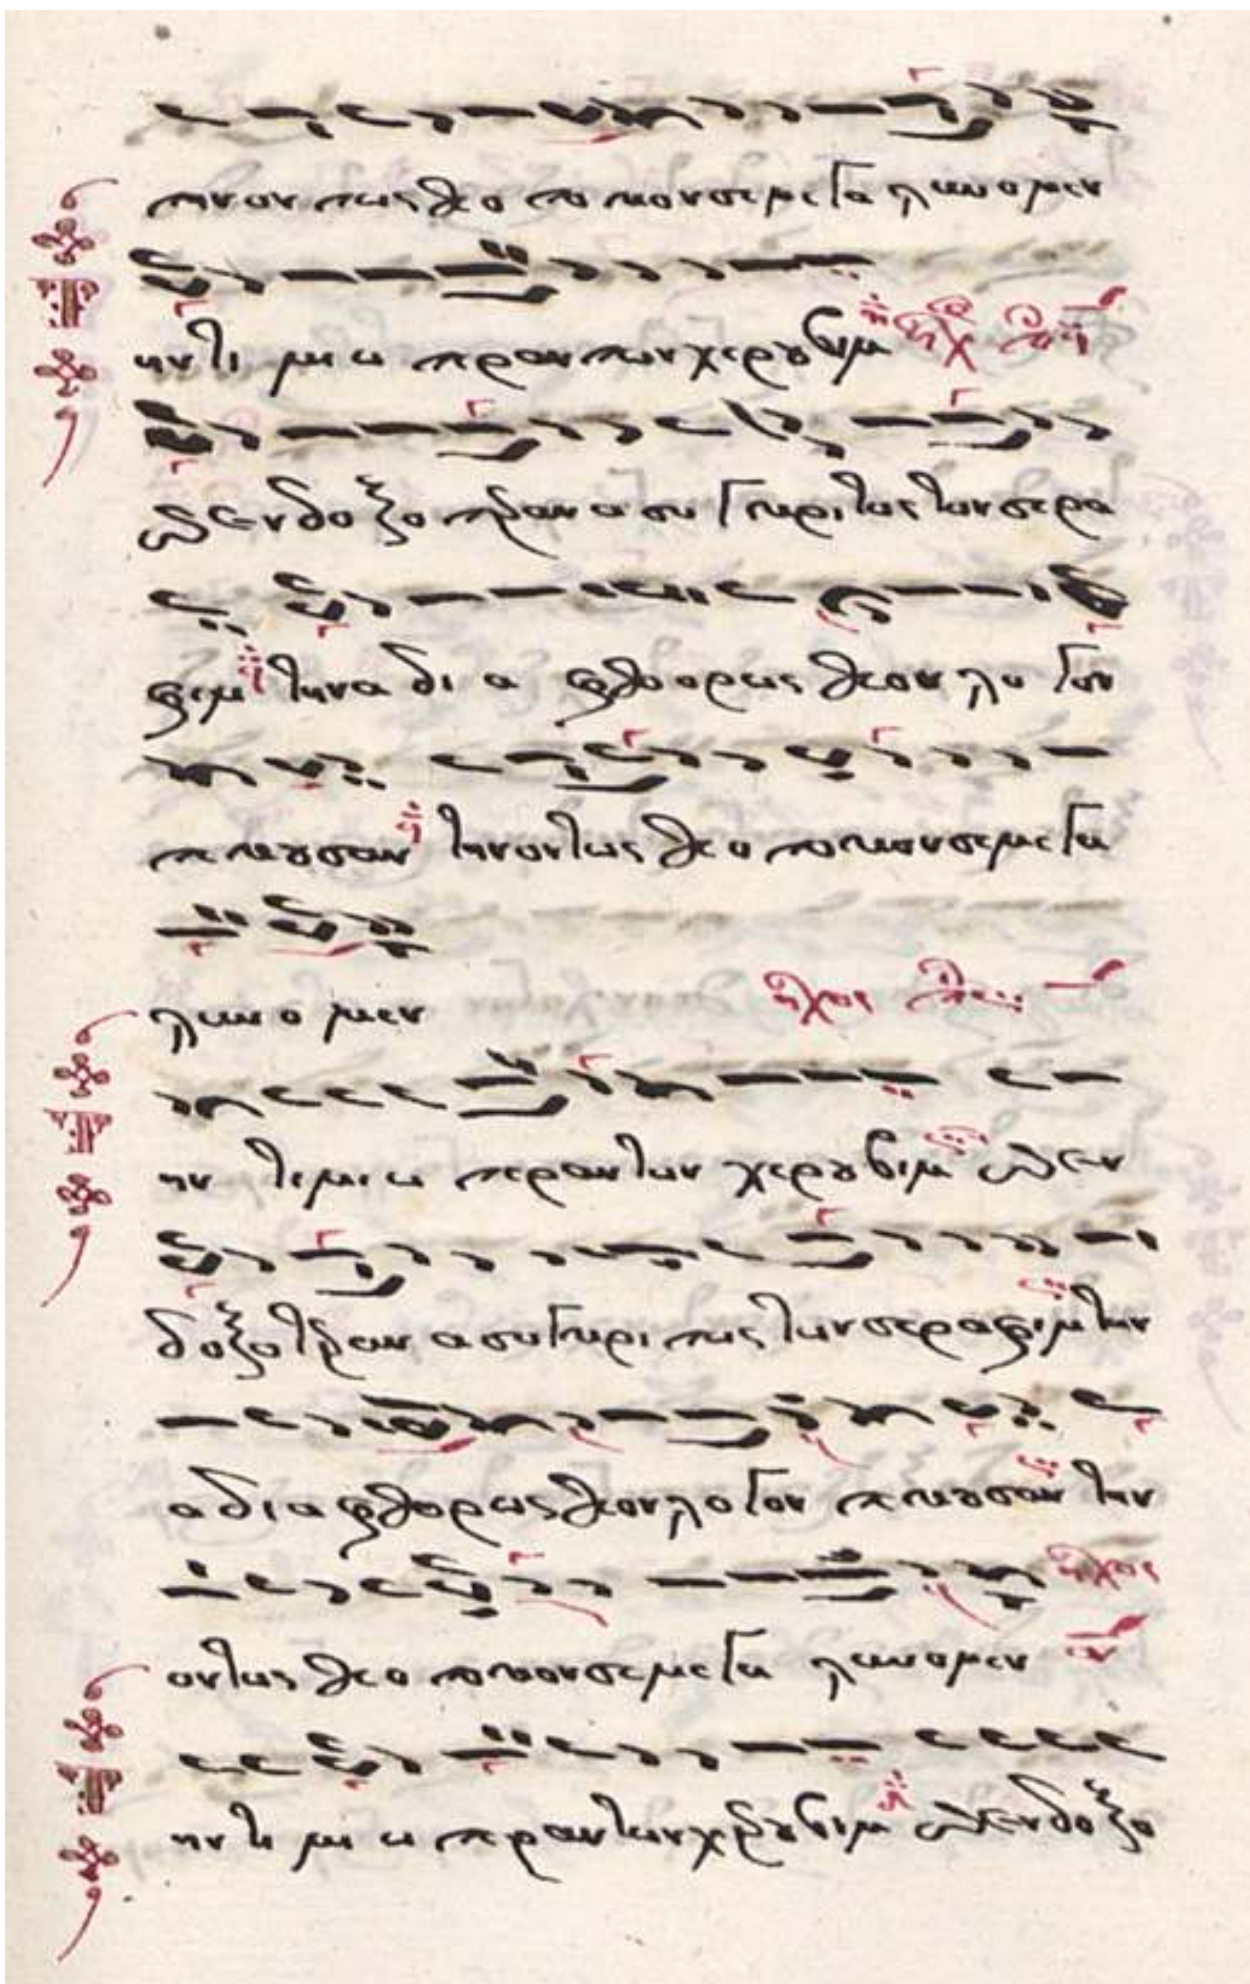 την οντως θεοτοκον σε μεγα λυνομεν
Την τιμιωτεραν των χερουβιμ ηχ πλ
και ενδοξοτεραν ασυγκριτως των σερα
φιμ την αδιαφθορως θεον λογον
τεκουσαν την οντως θεοτοκον σε μεγα
λυνομεν ηχος πλ
Την τιμιωτεραν των χερουβιμ και εν
δοξοτεραν ασυγκριτως των σεραφιμ την
αδιαφθορως θεον λογον τεκουσαν την
οντως θεοτοκον σε μεγα λυνομεν ηχος
Την τιμιωτεραν των χερουβιμ και ενδοξο